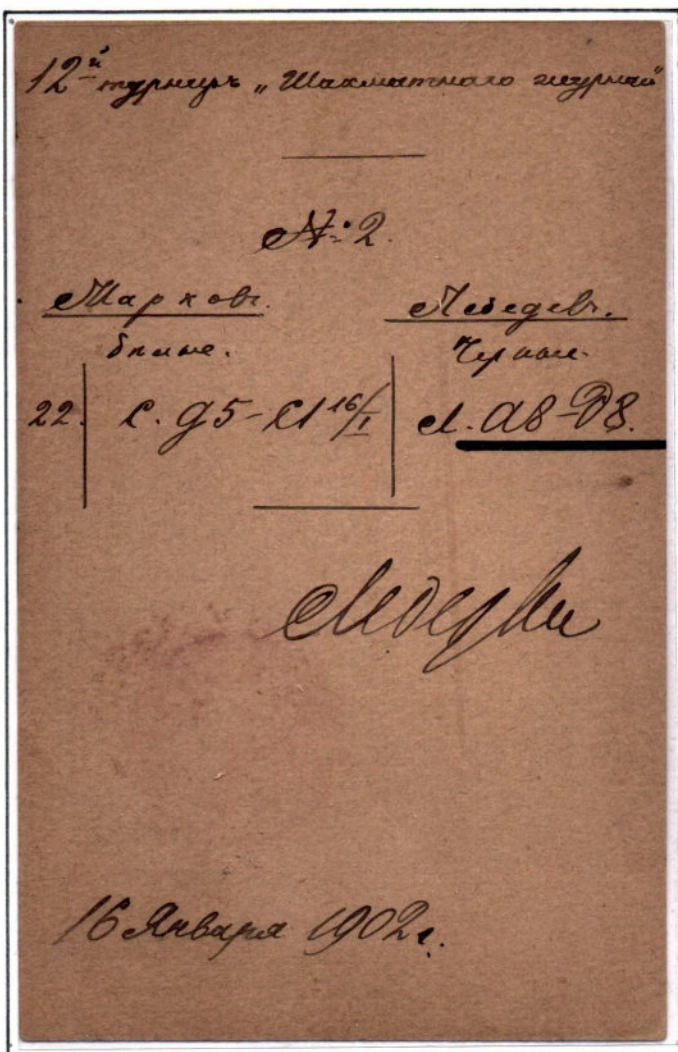 12й турниръ „Шахматнаго журнала"
№ 2.
Марковъ. Лебедевъ.
Бѣлые. Черные.
22. С. g5-c1 16/I Л. a8-d8.
16 Января 1902 г.